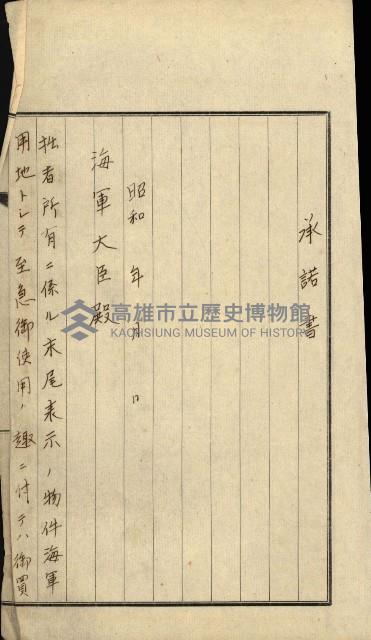 承諾書
昭和 年 月 日
海軍大臣殿
拙者所有ニ係ル末尾表示ノ物件海軍
用地トシテ至急御使用ノ趣ニ付テハ御買
高雄市立歷史博物館
KAOHSIUNG MUSEUM OF HISTORY